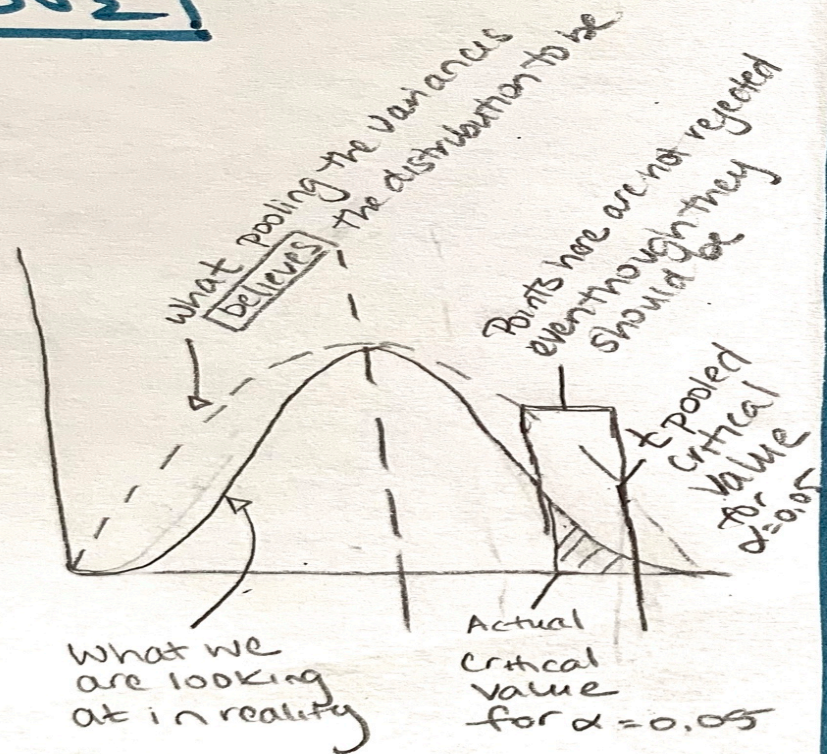 what pooling the variances
believes the distribution to be
Points here are not rejected
even though they
should be
t pooled
critical
value
for
α=0.05
What we
are looking
at in reality
Actual
critical
value
for α = 0.05